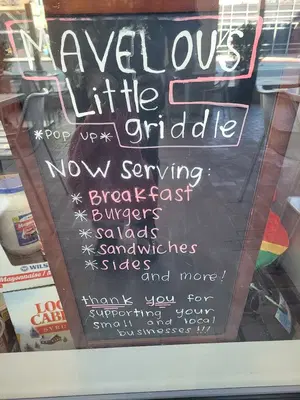 MAVELOU'S
Little
*POP UP* griddle
NOW SERVING:
* Breakfast
* Burgers
* salads
* sandwiches
* sides
and more!
thank you for
supporting your
small and local
businesses!!!
Mayonnaise
WILS
LOG
CAB
SYRU